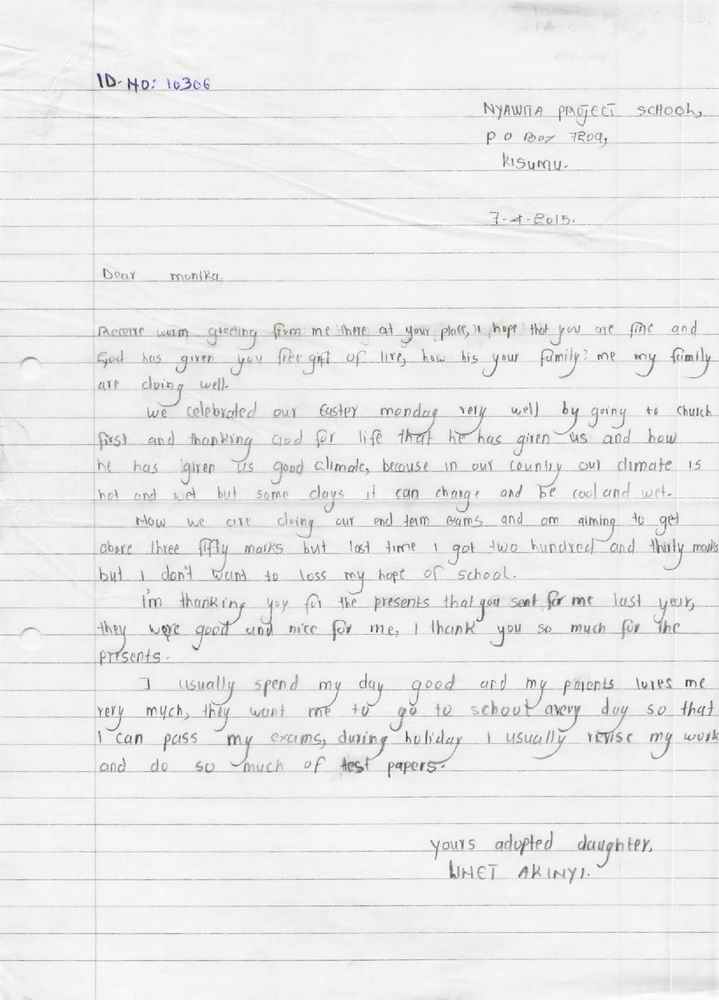 ID. NO: 10306
NYAWITA PROJECT SCHOOL,
P O BOX 7209,
KISUMU.
7-4-2015.
Dear monika,
Receive warm greeting from me there at your place, I, hope that you are fine and
God has given you free gift of live, how his your family? me my family
are doing well.
We celebrated our Easter monday very well by going to church
first and thanking God for life that he has given us and how
he has given us good climate, because in our country our climate is
hot and wet but some days it can change and be cool and wet.
Now we are doing our end term exams and am aiming to get
above three fifty marks but last time I got two hundred and thirty marks
but I don't want to loss my hope of school.
I'm thanking you for the presents that you sent for me last year,
they were good and nice for me, I thank you so much for the
presents.
I usually spend my day good and my parents loves me
very much, they want me to go to school every day so that
I can pass my exams, during holiday I usually revise my work
and do so much of test papers.
yours adopted daughter,
AKINYI.